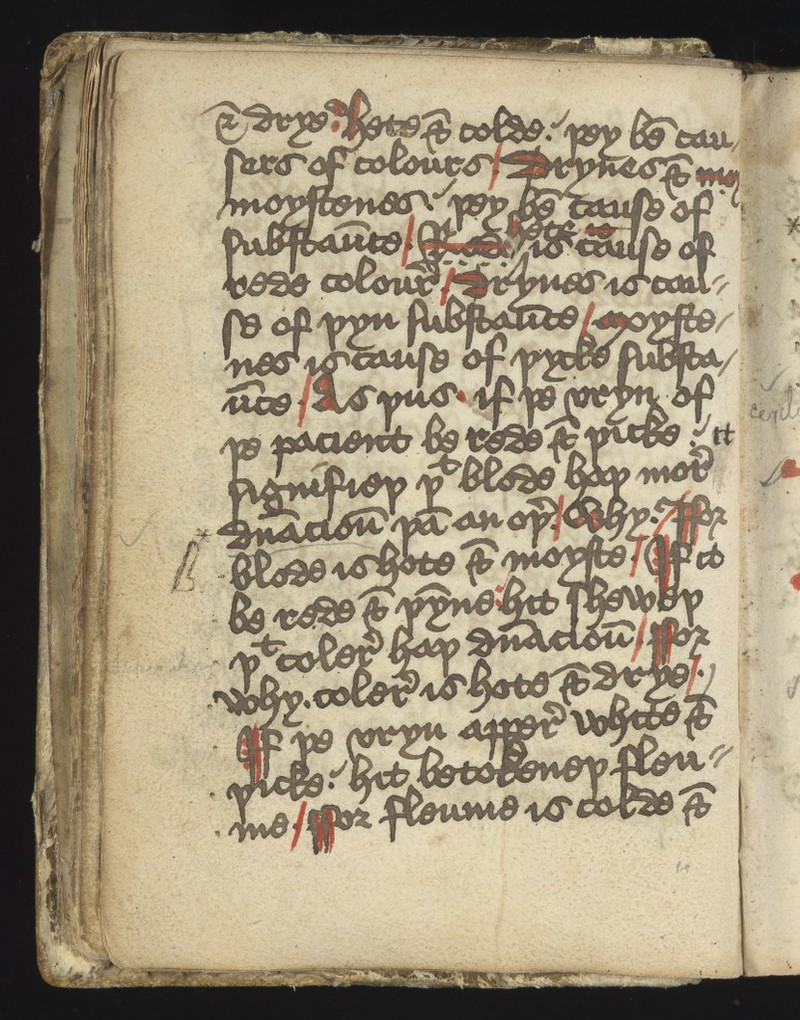 ⁊ drye: hete ⁊ colde. þey be cau
sers of colours / Drynes ⁊ mo
moystenes. þey be cause of
substaūce / hete is cause of
rede colour̄ / Drynes is cau-
se of þyn substaūce / moyste-
nes is cause of þycke substa-
ūce / As þus. if þe vryn of
þe pacient be rede ⁊ þicke. it
signifieþ þᵗ blode haþ mor̄
dn̄acioū þā an oþ̄ / Why. ffor
blode is hote ⁊ moyste / If it
be rede ⁊ þyne: hit sheweþ
þᵗ coler̄ haþ dn̄acioū / ffor
why. coler̄ is hote ⁊ drye /.
If þe vryn apper̄ white ⁊
þicke. hit betokeneþ fleu-
me / ffor fleume is colde ⁊